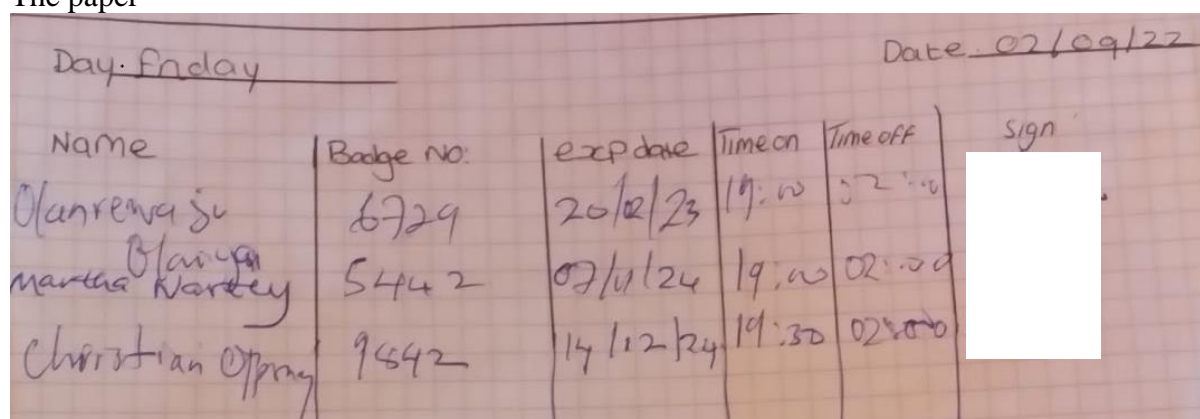 The paper
Day. Friday Date. 02/09/22
Name Badge No: exp date Time on Time off sign
Olanrewaju 6729 20/02/23 19:00 02:00
Martha Nartey 5442 07/11/24 19:00 02:00
Christian 9842 14/12/24 19:30 02:00